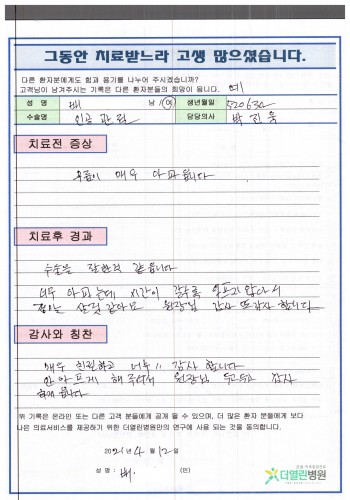 그동안 치료받느라 고생 많으셨습니다.
다른 환자분에게도 힘과 용기를 나누어 주시겠습니까?
고객님이 남겨주시는 기록은 다른 환자분들의 희망이 됩니다. 예
성 명 배 남 / 여 생년월일 520630
수술명 인공관절 담당의사 박진욱
치료전 증상
무릎이 매우 아파웁니다
치료후 경과
수술을 잘한것 같습니다
너무 아파는데 시간이 갈수록 아프지 않다
원장님 감사 또 감사 합니다
감사와 칭찬
매우 친절하고 너무 감사합니다
안아프게 해주셔서 원장님 감사
위 기록은 온라인 또는 다른 고객 분들에게 공개 될 수 있으며, 더 많은 환자 분들에게 보다
나은 의료서비스를 제공하기 위한 더열린병원만의 연구에 사용 되는 것을 동의합니다.
2021년 4월 12일
성 명 : 배. (인)
더열린병원